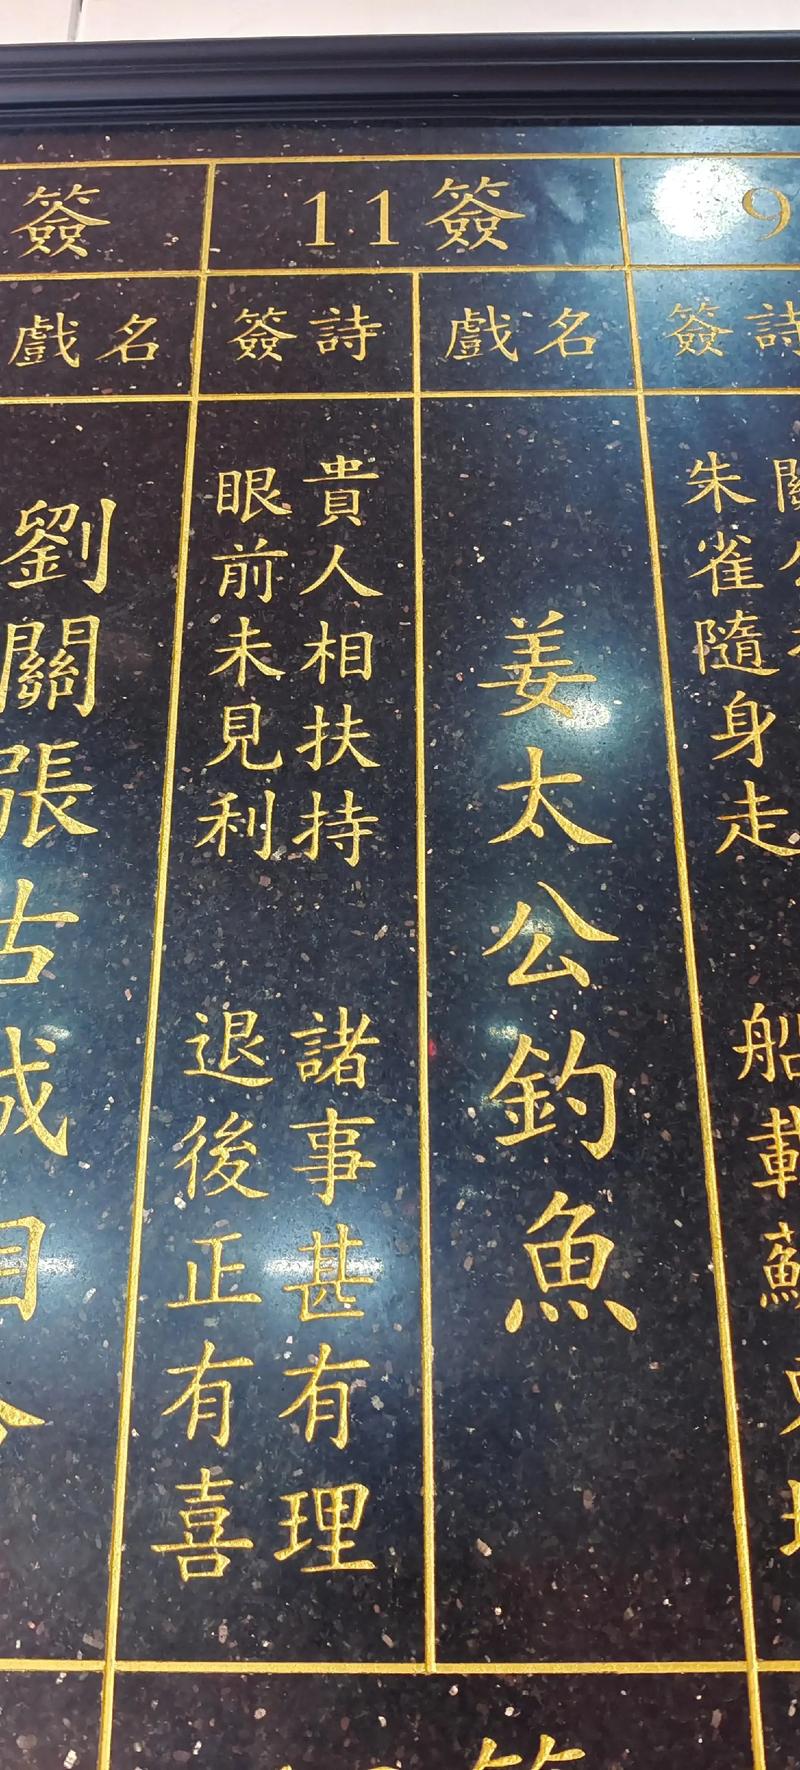 9
簽詩
朱雀隨身走
船載
11簽
戲名
姜太公釣魚
簽詩
貴人相扶持 諸事甚有理
眼前未見利 退後正有喜
簽
戲名
劉關張古城